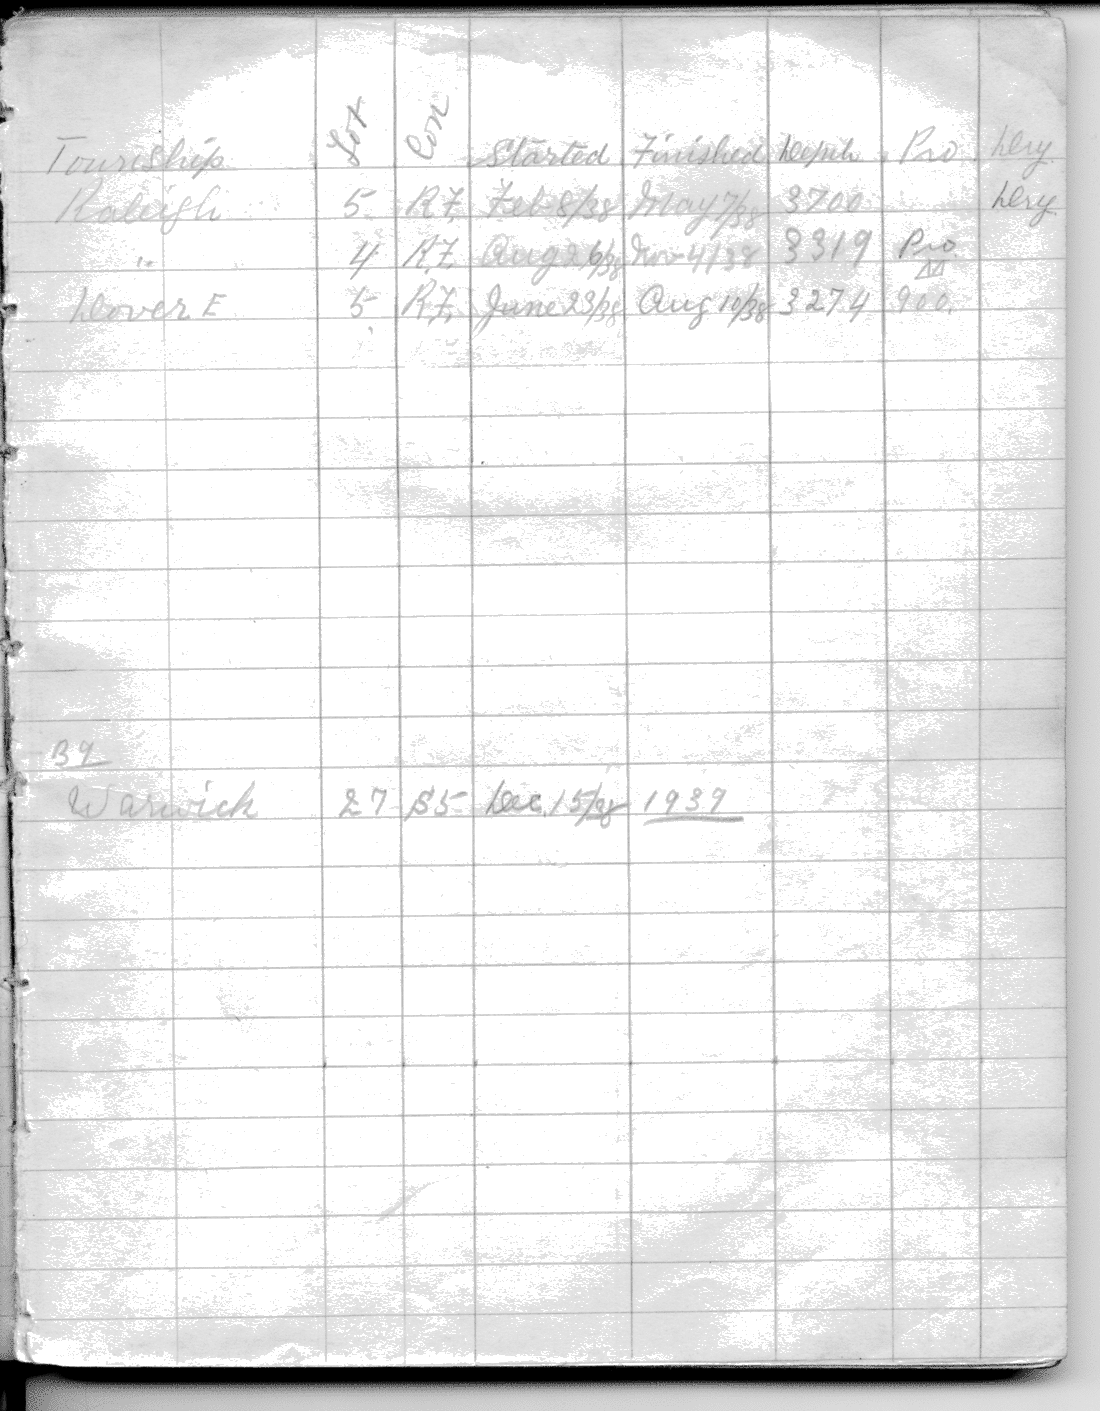 Township Lot Con Started Finished Depth Pro Dry
Raleigh 5 R.F. Feb 8/38 May 7/38 3700 Dry
" 4 R.F. Aug 26/38 Nov 4/38 3319 Pro.
Dover E 5 R.F. June 23/38 Aug 10/38 3274 900.
By
Warwick 27 S5 Dec. 15/38 1939